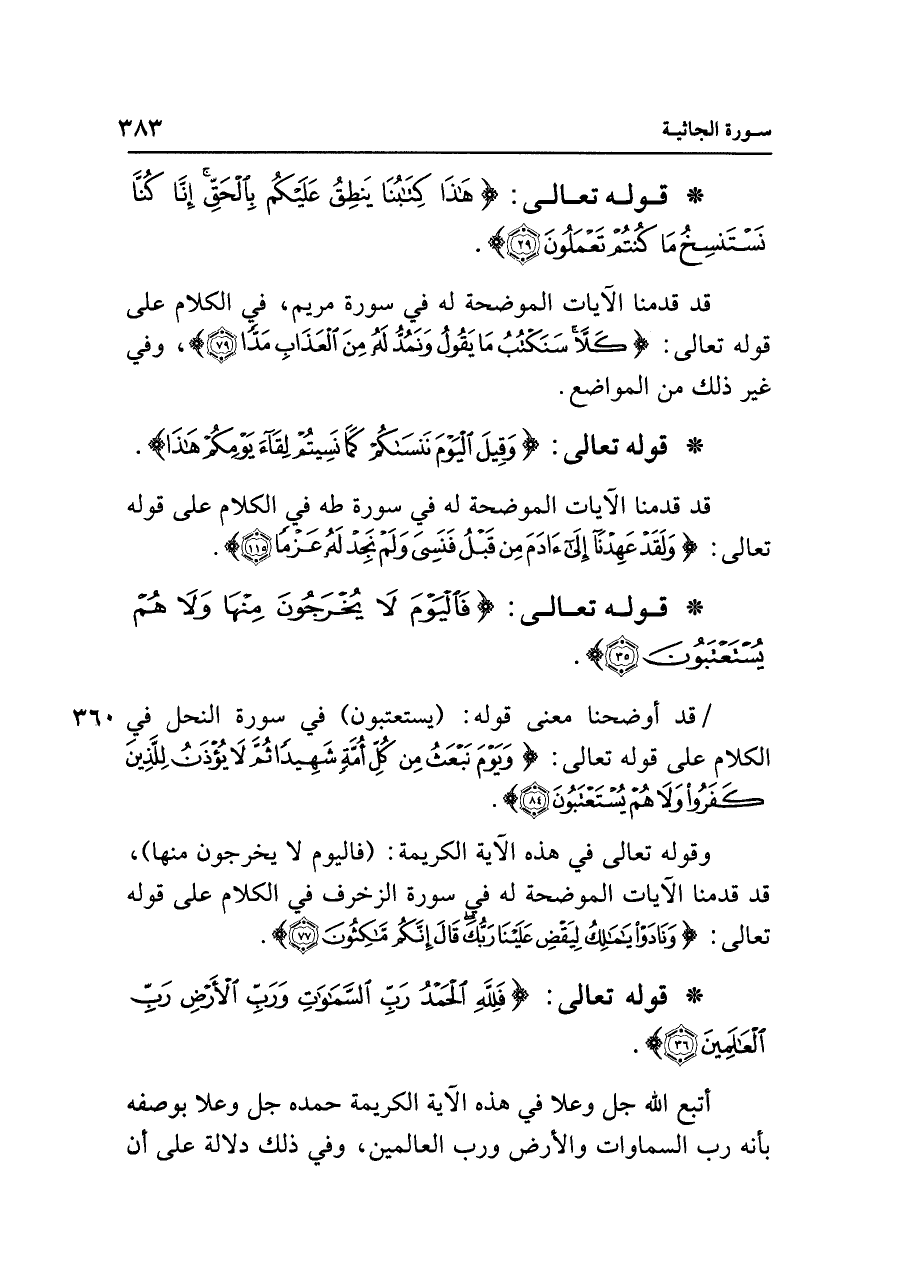 سورة الجاثية ٣٨٣
* قولـه تعـالـى: ﴿ هَٰذَا كِتَٰبُنَا يَنطِقُ عَلَيْكُم بِٱلْحَقِّ ۚ إِنَّا كُنَّا
نَسْتَنسِخُ مَا كُنتُمْ تَعْمَلُونَ ٢٩﴾ .
قد قدمنا الآيات الموضحة له في سورة مريم، في الكلام على
قوله تعالى: ﴿ كَلَّا ۚ سَنَكْتُبُ مَا يَقُولُ وَنَمُدُّ لَهُۥ مِنَ ٱلْعَذَابِ مَدًّا ٧٩﴾، وفي
غير ذلك من المواضع.
* قوله تعالى: ﴿ وَقِيلَ ٱلْيَوْمَ نَنسَىٰكُمْ كَمَا نَسِيتُمْ لِقَآءَ يَوْمِكُمْ هَٰذَا﴾ .
قد قدمنا الآيات الموضحة له في سورة طه في الكلام على قوله
تعالى: ﴿ وَلَقَدْ عَهِدْنَآ إِلَىٰٓ ءَادَمَ مِن قَبْلُ فَنَسِىَ وَلَمْ نَجِدْ لَهُۥ عَزْمًا ١١٥﴾ .
* قولـه تعـالـى: ﴿ فَٱلْيَوْمَ لَا يُخْرَجُونَ مِنْهَا وَلَا هُمْ
يُسْتَعْتَبُونَ ٣٥﴾ .
/ قد أوضحنا معنى قوله: (يستعتبون) في سورة النحل في ٣٦٠
الكلام على قوله تعالى: ﴿ وَيَوْمَ نَبْعَثُ مِن كُلِّ أُمَّةٍ شَهِيدًا ثُمَّ لَا يُؤْذَنُ لِلَّذِينَ
كَفَرُوا۟ وَلَا هُمْ يُسْتَعْتَبُونَ ٨٤﴾ .
وقوله تعالى في هذه الآية الكريمة: (فاليوم لا يخرجون منها)،
قد قدمنا الآيات الموضحة له في سورة الزخرف في الكلام على قوله
تعالى: ﴿ وَنَادَوْا۟ يَٰمَٰلِكُ لِيَقْضِ عَلَيْنَا رَبُّكَ ۖ قَالَ إِنَّكُم مَّٰكِثُونَ ٧٧﴾ .
* قوله تعالى: ﴿ فَلِلَّهِ ٱلْحَمْدُ رَبِّ ٱلسَّمَٰوَٰتِ وَرَبِّ ٱلْأَرْضِ رَبِّ
ٱلْعَٰلَمِينَ ٣٦﴾ .
أتبع الله جل وعلا في هذه الآية الكريمة حمده جل وعلا بوصفه
بأنه رب السماوات والأرض ورب العالمين، وفي ذلك دلالة على أن